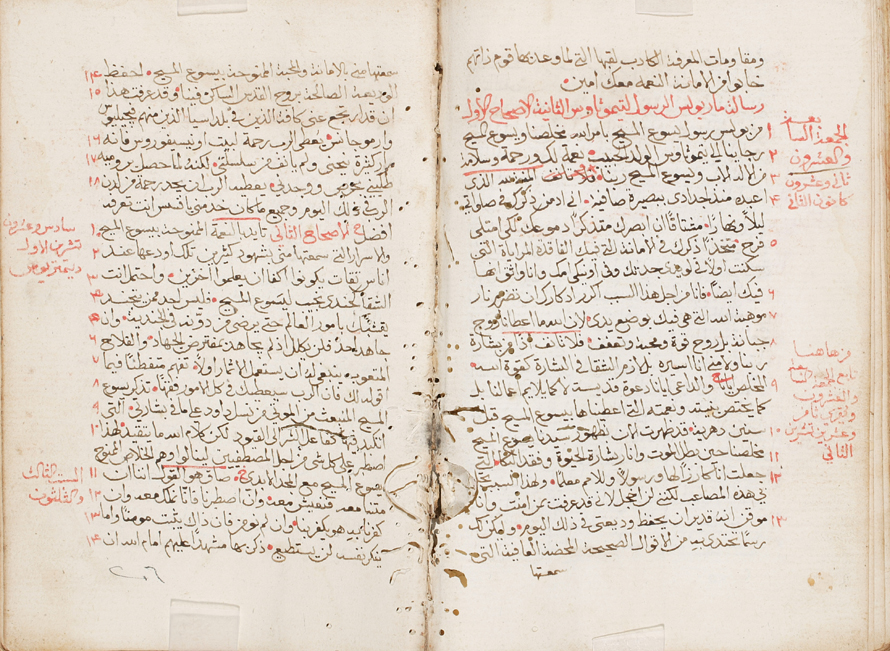 ومقاومات المعرفة الكاذب لقبها التي لما وعد بها قوم ذاتهم
خابوا من الامانة النعمة معك امين
رسالة مار بولس الرسول لتيموتاوس الثانية الاصحاح الاول
من بولس رسول يسوع المسيح بامر الله مخلصنا ويسوع المسيح
رجاينا الى تيموتاوس الولد الحبيب نعمة لك ورحمة وسلامة
من الله الاب ويسوع المسيح ربنا
اعبده منذ اجدادي ببصيرة صافية اني ادمن ذكرك في صلواتي
ليلاً ونهارًا مشتاقًا ان ابصرك متذكرًا دموعك لكي امتلي
فرح متخذًا ذكرك في الامانة التي فيك الفاقدة المراياة التي
سكنت اولاً في لويدي جدتك وفي اونيكي امك وانا واثق انها
فيك ايضًا فانا من اجل هذا السبب اكرر اذكارك ان تضرم نار
موهبة الله التي هي فيك بوضع يدي لان الله ما اعطانا روح
جبانة بل روح قوة ومحبة وتعفف فلا تانف من بشارة
ربنا ولا مني انا اسيره بل الزم الشقا في البشارة كقوة الله
المخلص ايانا والداعي ايانا دعوة قديسة لا كما يلايم اعمالنا بل
كما يختص بنيته ونعمته التي اعطناها بيسوع المسيح قبل
سنين دهرية قد ظهرت الان بظهور سيدنا يسوع المسيح
مخلصنا حين بطل الموت وانار بشارة الحيوة وفقد البلا التي
جعلت انا كارزًا لها ورسولاً وللامم معلمًا ولهذا السبب
في هذه المصاعب لكنني لن اخجل لاني قد عرفت بمن امنت وانا
موقن انه قدير ان يحفظ وديعتي في ذلك اليوم ولكن لك
رسمًا تحتذي به من الاقوال الصحيحة المحضة العافية التي
سمعتها
١
٢
٣
٤
٥
٦
٧
٨
١٠
١١
١٢
١٣
للجمعة السابعة
والعشرون
ثاني وعشرون
كانون الثاني
من هاهنا
والعشرون
وعشرين تشرين
الثاني
سمعتها مني بالامانة والمحبة الممنوحة بيسوع المسيح احفظ
الوديعة الصالحة بروح القدس الساكن فينا وقد عرفت هذا
ان قد ارتجع عني كافة الذين في بلد اسيا الذين منهم فيجيلوس
وارموجانس يعطي الرب رحمة لبيت اونيسيفوروس فانه
مرار كثيرة نيحني ولم يانف من سلسلتي لكنه لما حصل برومية
طلبني بحرص ووجدني يعطيه الرب ان يجد رحمة من لدن
الرب في ذلك اليوم وجميع ما كان خدمني بافسس انت تعرفه
افضل الاصحاح الثاني تايد بالنعمة الممنوحة بيسوع المسيح
والاسرار التي سمعتها مني بشهود كثيرين تلك اودعها عند
اناس ثقات يكونوا اكفا ان يعلموا اخرين واحتمل انت
الشقا كجندي نجيب ليسوع المسيح فليس احد ممن يتجند
يقتنك بامور العالم حتى يرضي من دونه في الجندية وان
جاهد احد فلن يكلل اذ لم يجاهد بمفترض الجهاد والفلاح
المتعوب ينبغي له ان يستعمل الاثمار اولاً تفهم متفطنًا فيما
اقوله لك فان الرب سيعطيك في كل الامور فهمًا تذكر يسوع
المسيح المنبعث من الموتى من نسل داود على ما في بشارتي التي
اتكبد فيها كفاعل الشر الى القيود لكن كلام الله ما يتقيد لهذا
اصطبر على كل شي من اجل المصطفين لينالوا وهم الخلاص الممنوح
بيسوع المسيح مع المجد الابدي صادق هو القول اننا ان
متنا معه فنعيش معه وان اصطبرنا فاننا نملك معه وان
كفرنا به هو يكفر بنا وان لم نومن فان ذاك يثبت مومنًا واما
يكفر بنفسه لن يستطيع ذكر بها مشهدًا عليهم امام الله ان
١٤
١٥
١٦
١٧
١٨
١
٢
٣
٤
٥
٦
٧
٨
٩
١٠
١١
١٢
١٣
١٤
سادس وعشرون
تشرين الاول
ديمتريوس
السبت الثالث
والثلثون
٢٠٦